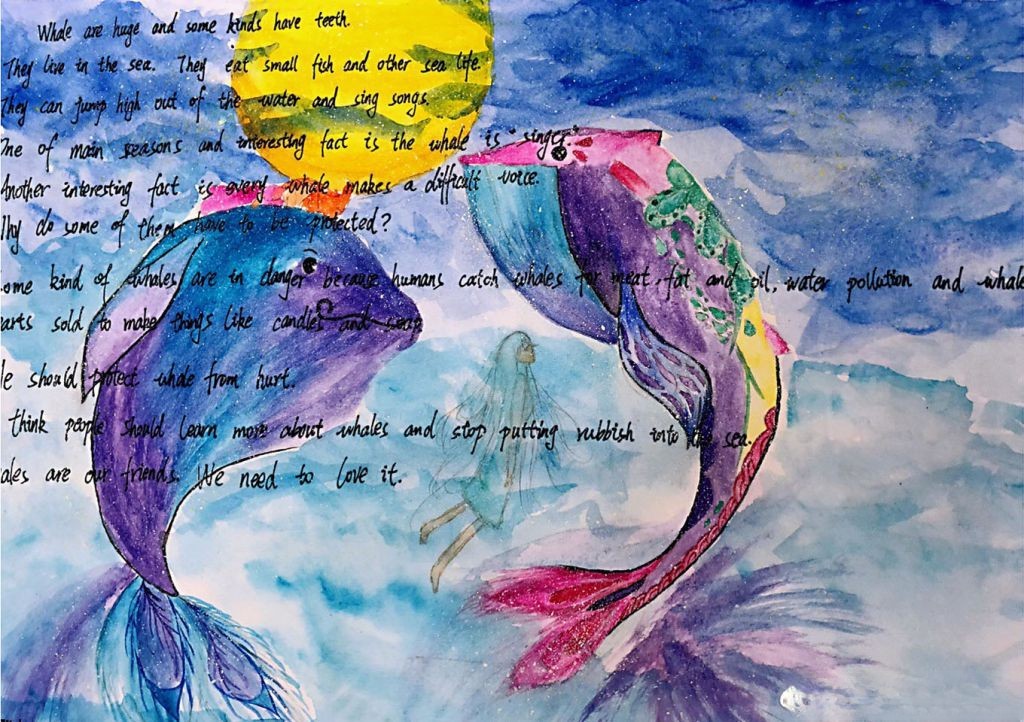 Whale are huge and some kinds have teeth.
They live in the sea. They eat small fish and other sea life.
They can jump high out of the water and sing songs.
One of main seasons and interesting fact is the whale is "singer"
Another interesting fact is every whale makes a difficult voice.
Why do some of them have to be protected?
ome kind of whales are in danger because humans catch whales for meat, fat and oil, water pollution and whale
arts sold to make things like candles and soap.
e should protect whale from hurt.
think people should learn more about whales and stop putting rubbish into the sea.
ales are our friends. We need to love it.